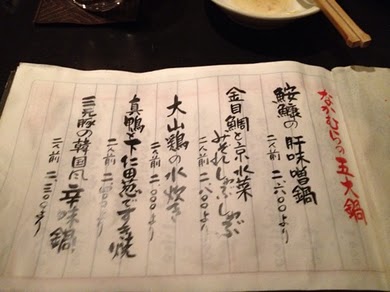 なかむらの五大鍋
鮟鱇の肝味噌鍋
二人前 二、六〇〇より
金目鯛と京水菜
みぞれしゃぶしゃぶ
二人前 二、八〇〇より
大山鶏の水炊き
二人前 二、〇〇〇より
真鴨と下仁田葱ですき焼
二人前 二、四〇〇より
三元豚の韓国風辛味鍋
二人前 二、三〇〇より